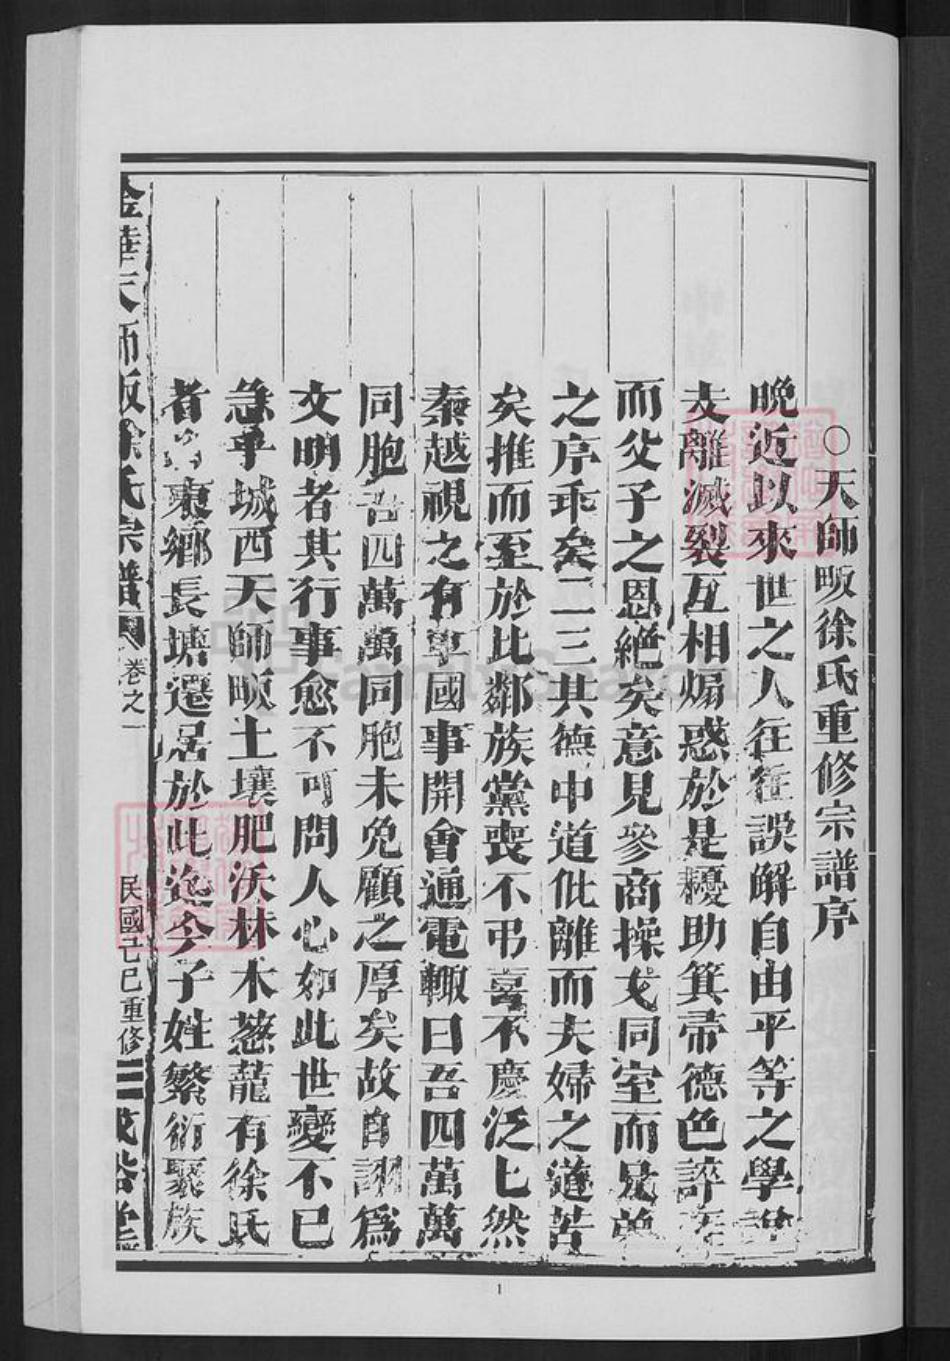 ○天師畈徐氏重修宗譜序
晚近以來世之人往往誤解自由平等之學說
支離滅裂互相煽惑於是耰助箕帚德色誶語
而父子之恩絕矣意見參商操戈同室而兄弟
之序乖矣二三其德中道仳離而夫婦之道苦
矣推而至於比鄰族黨喪不弔喜不慶泛七然
秦越視之有事國事開會通電輙曰吾四萬萬
同胞吾四萬萬同胞未免顧之厚矣故自詡為
文明者其行事愈不可問人心如此世變不已
急乎城西天師畈土壤肥沃林木葱蘢有徐氏
者 東鄉長塘遷居於此迄今子姓繁衍聚族
金華天師畈徐氏宗譜 卷之一 民國己巳重修 堂
FamilySearch
1